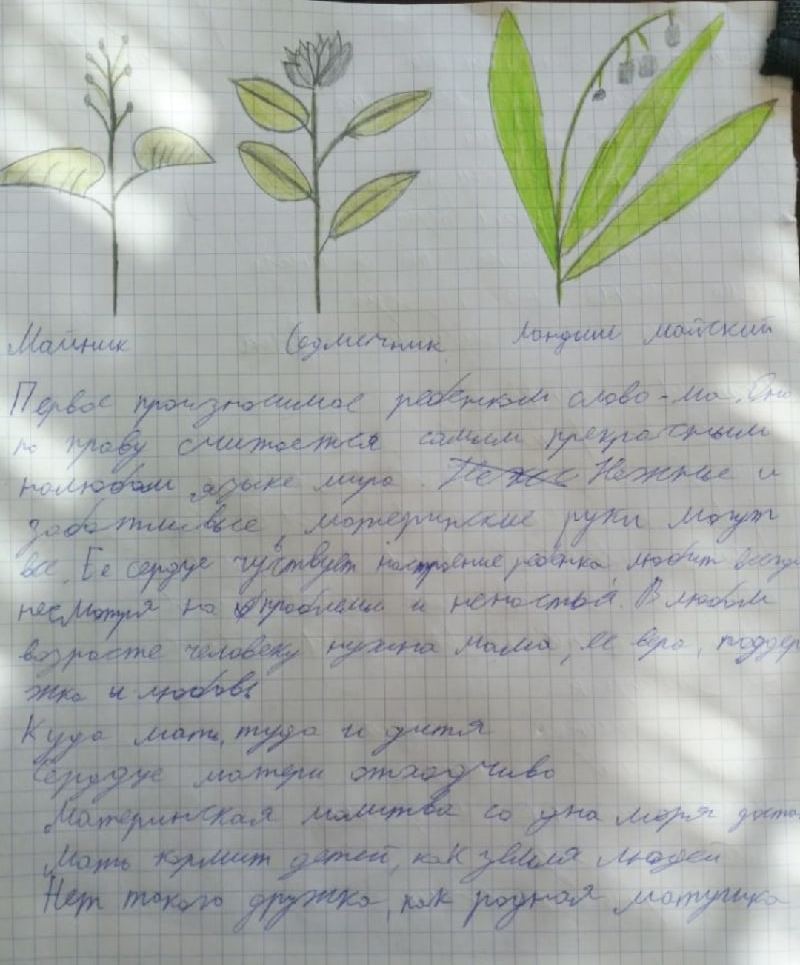 Майник Седмичник Ландыш майский
Первое произносимое ребенком слово - ма. Оно
по праву считается самым прекрасным
налюбом языке мира. Нежные и
заботливые, материнские руки могут
все. Ее сердце чувствует настроение ребенка, любит всегда
несмотря на проблемы и ненастья. В любом
возрасте человеку нужна мама, ее вера, поддер
жка и любовь
Куда мать, туда и дитя
Сердце матери отходчиво
Материнская молитва со дна моря доста
Мать кормит детей, как земля людей
Нет такого дружка, как родная матушка